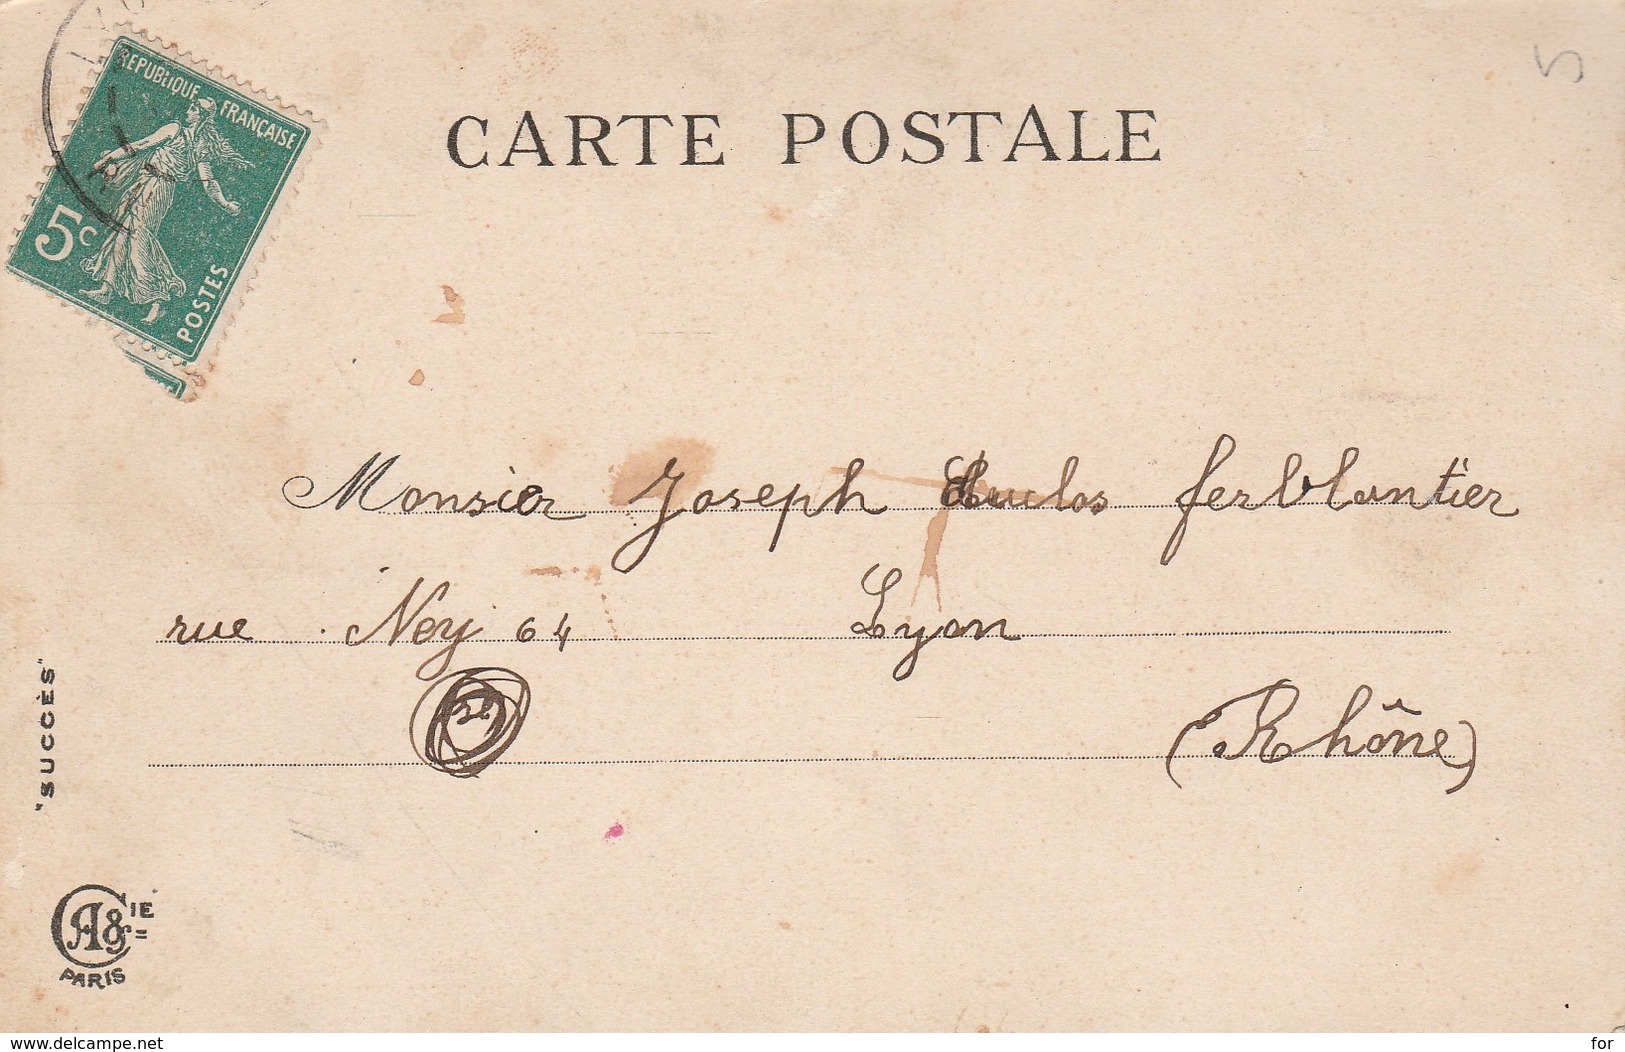 REPUBLIQUE FRANÇAISE
5c
POSTES
CARTE POSTALE
5
Monsier Joseph ferblantier
rue Ney 64 Lyon
(Rhône)
"SUCCÈS"
CA & IE
PARIS
www.delcampe.net
for